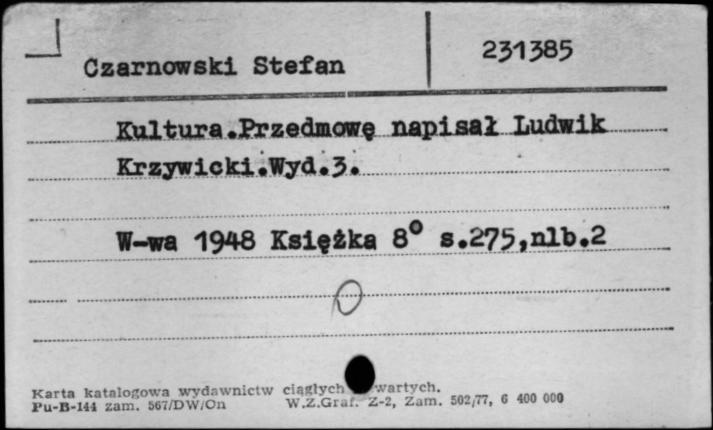 Czarnowski Stefan
231385
Kultura.Przedmowę napisał Ludwik
Krzywicki.Wyd.3.
W-wa 1948 Książka 8° s.275,nlb.2
Karta katalogowa wydawnictw ciągłych wartych.
Pu-B-144 zam. 567/DW/On W.Z.Graf. Z-2, Zam. 502/77, 6 400 000